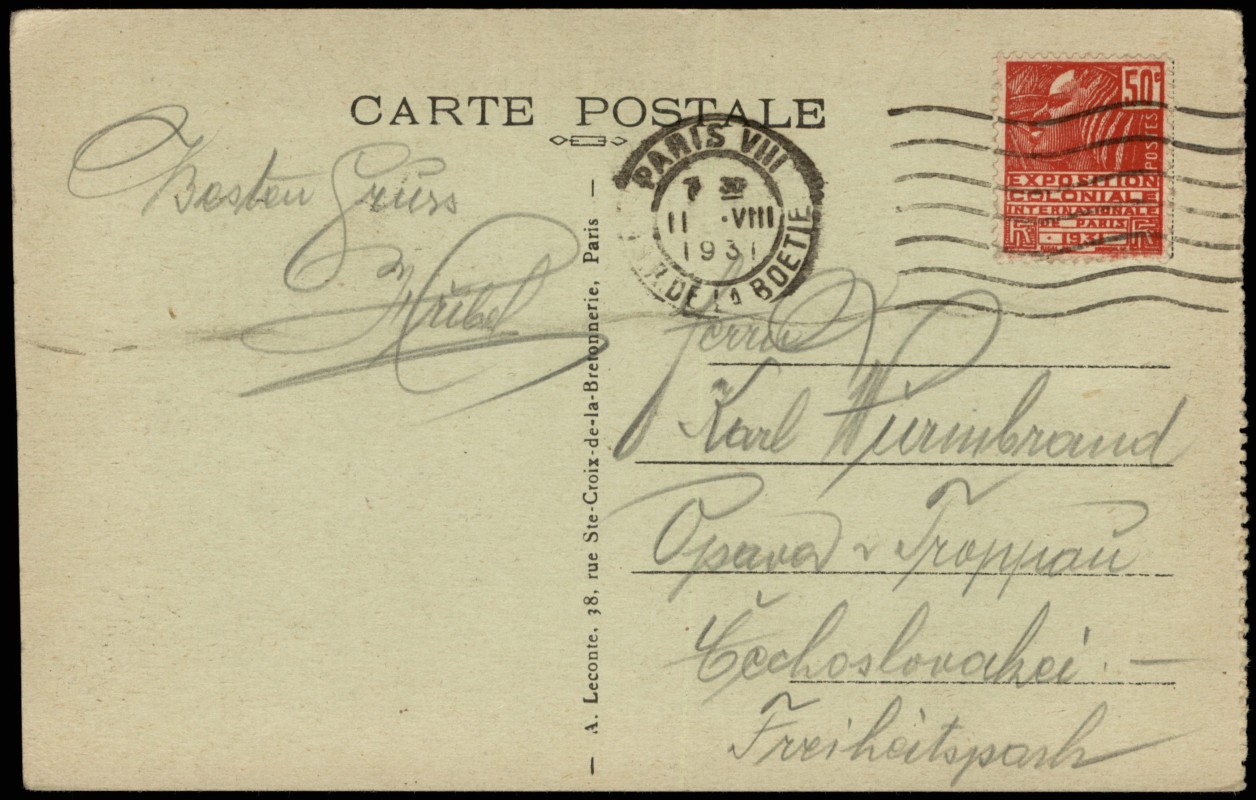 CARTE POSTALE
Besten Gruss
PARIS VIII
7
11 · VIII
1931
R. DE LA BOETIE
50c
POSTES
EXPOSITION
COLONIALE
INTERNATIONALE
PARIS
· 1931 ·
Herrn
Karl Wurmbrand
Opava v Troppau
Čechoslovakei —
Freiheitspark
— A. Leconte, 38, rue Ste-Croix-de-la-Bretonnerie, Paris —